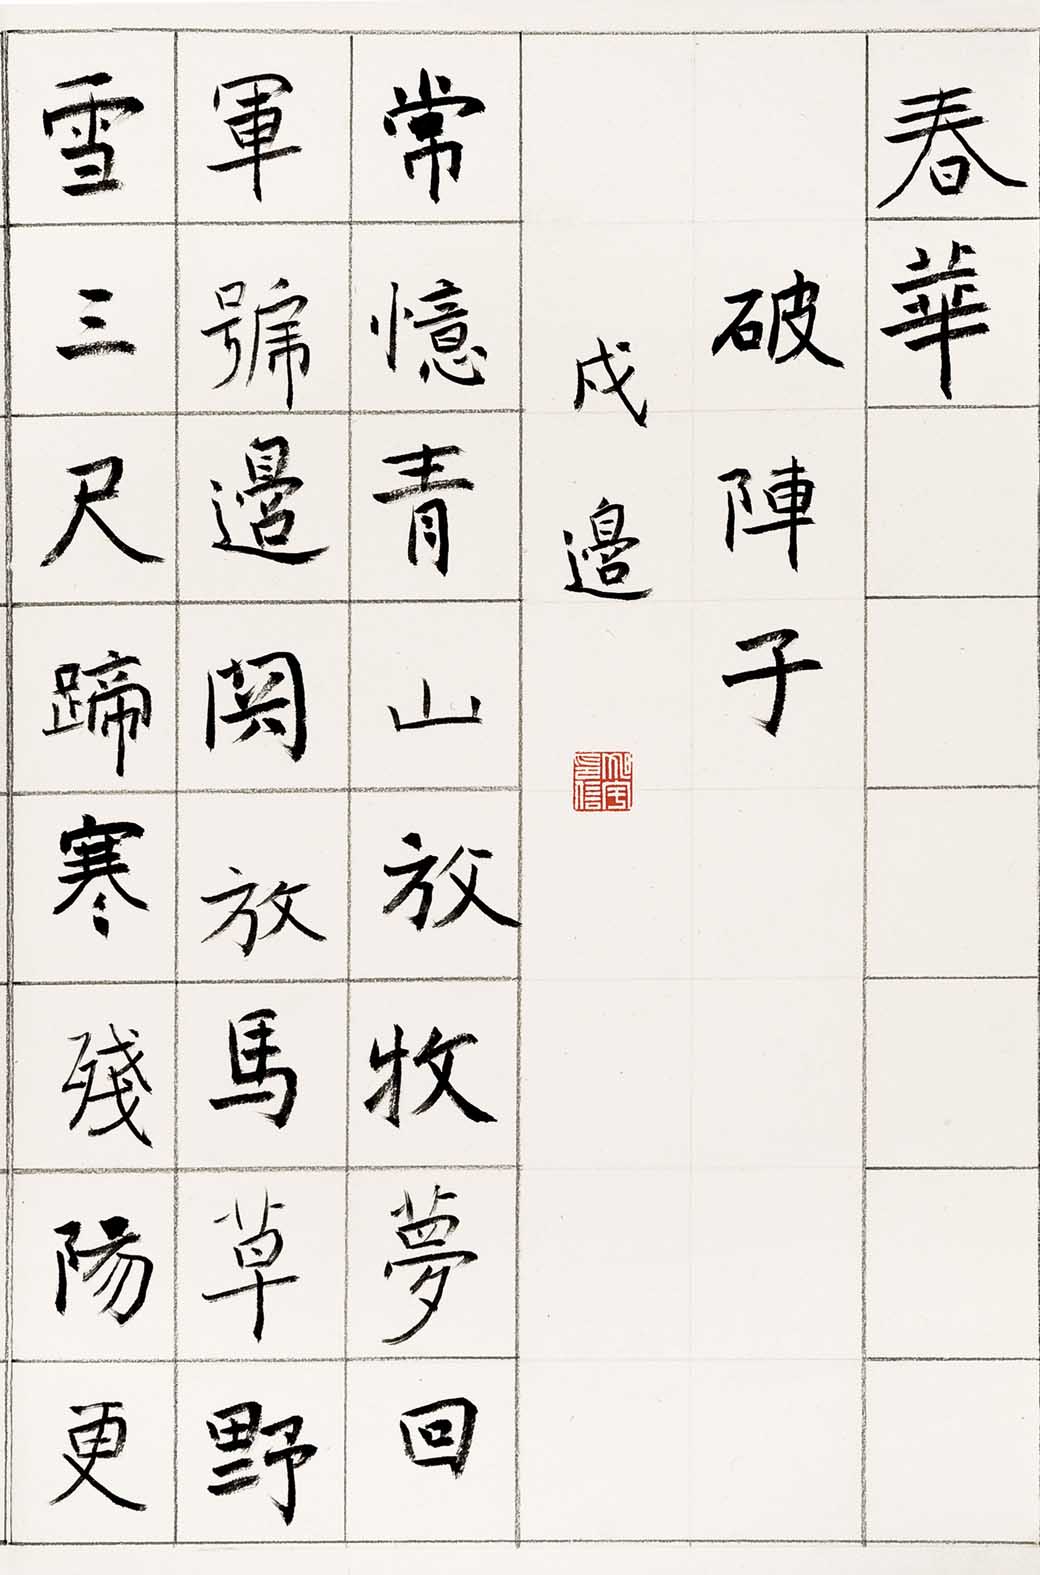 春華
破陣子
戍邊
常憶青山放牧夢回
軍號邊関放馬草野
雪三尺蹄寒殘陽更